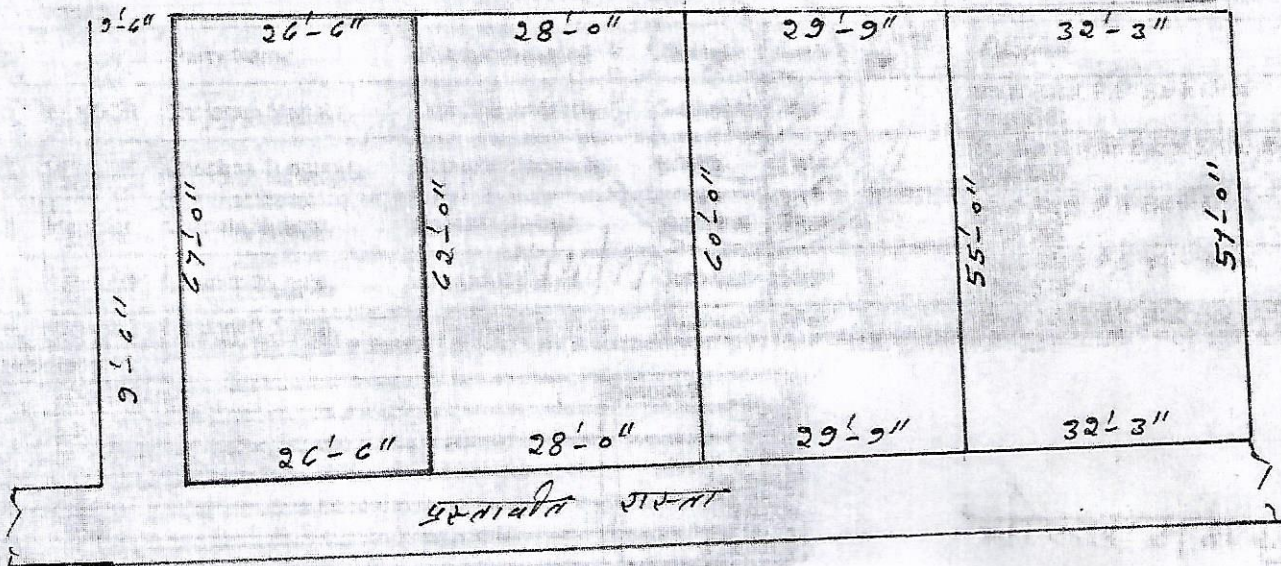 9'-6" 26'-6" 28'-0" 29'-9" 32'-3"
67'-0" 62'-0" 60'-0" 55'-0" 51'-0"
9'-6"
26'-6" 28'-0" 29'-9" 32'-3"
प्रस्तावीत रास्ता